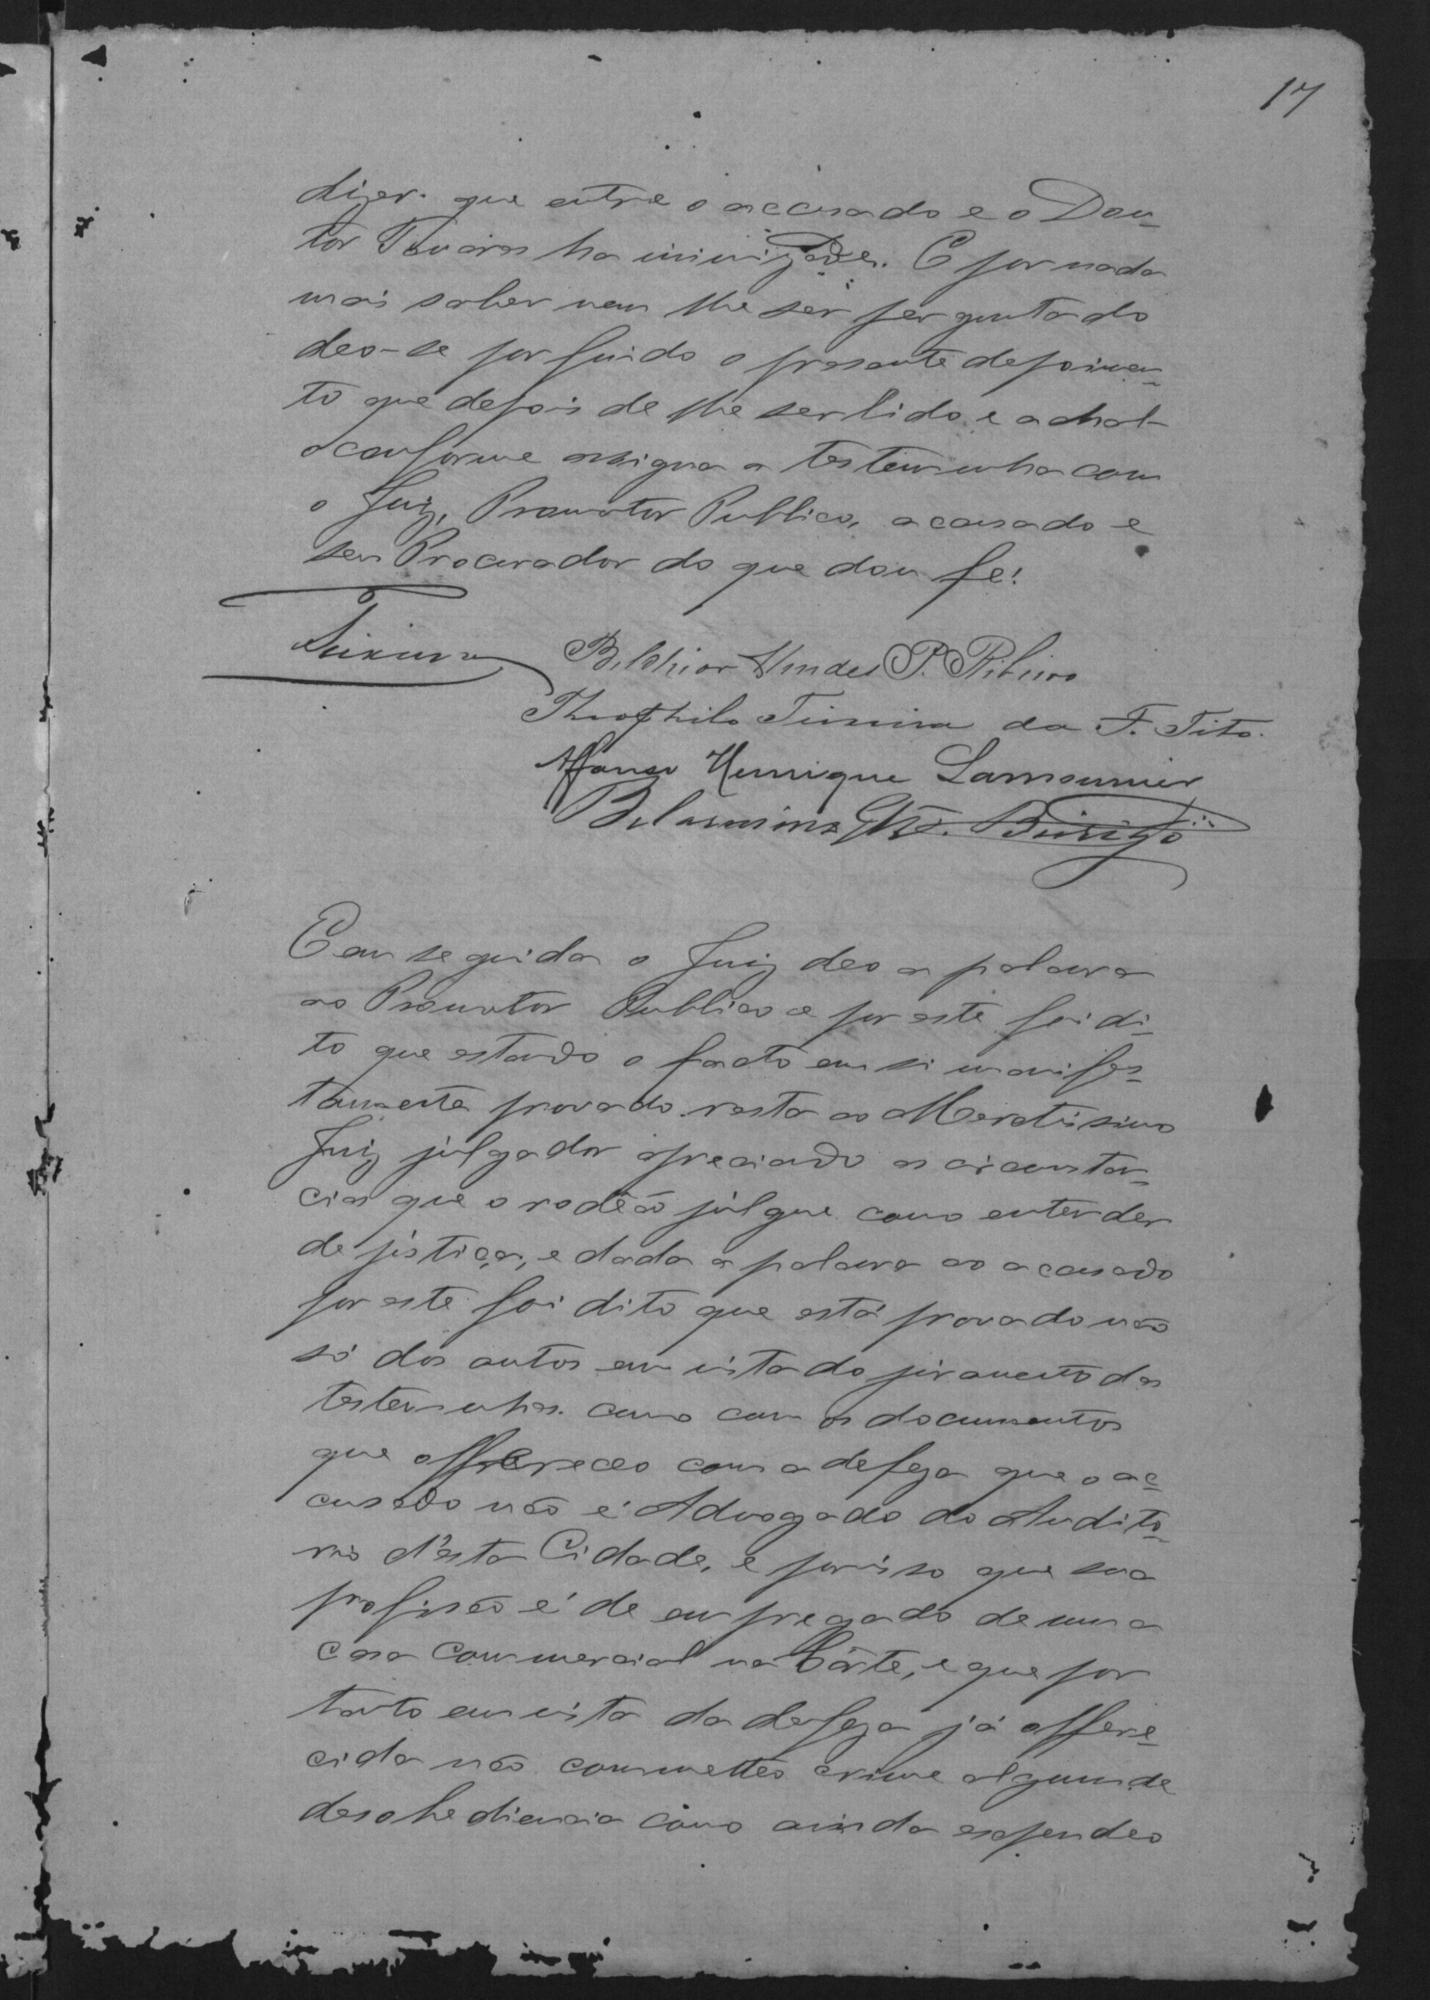 17
dizer que entre o accusado e o Dou-
tor Tavares ha inimizade. E por nada
mais saber nem lhe ser perguntado
deo-se por findo o presente depoimen-
to que depois de lhe ser lido e achal-
o conforme assigna a testemunha com
o Juiz, Promotor Publico, acusado e
seu Procurador do que dou fé.
Teixeira
Belchior Mendes P. Ribeiro
Theophilo Teixeira da F. Tito.
Affonso Henrique Lamounier
Em seguida o Juiz deo a palavra
ao Promotor Publico e por este foi di-
to que estando o facto em si manifes-
tamente provado resta ao Meretissimo
Juiz julgador apreciando as circunstan-
cias que o rodeão julgue como entender
de justiça, e dada a palavra ao acusado
por este foi dito que está provado não
só dos autos em vista do juramento das
testemunhas como com os documentos
que offereceo com a defeza que o ac-
cusado não é Advogado do Audito-
rio d'esta Cidade, e por isso que sua
profissão é de empregado de uma
casa commercial na Côrte, e que por
tanto em vista da defeza já offere-
cida não commetteo crime algum de
desobediencia como ainda espendeo